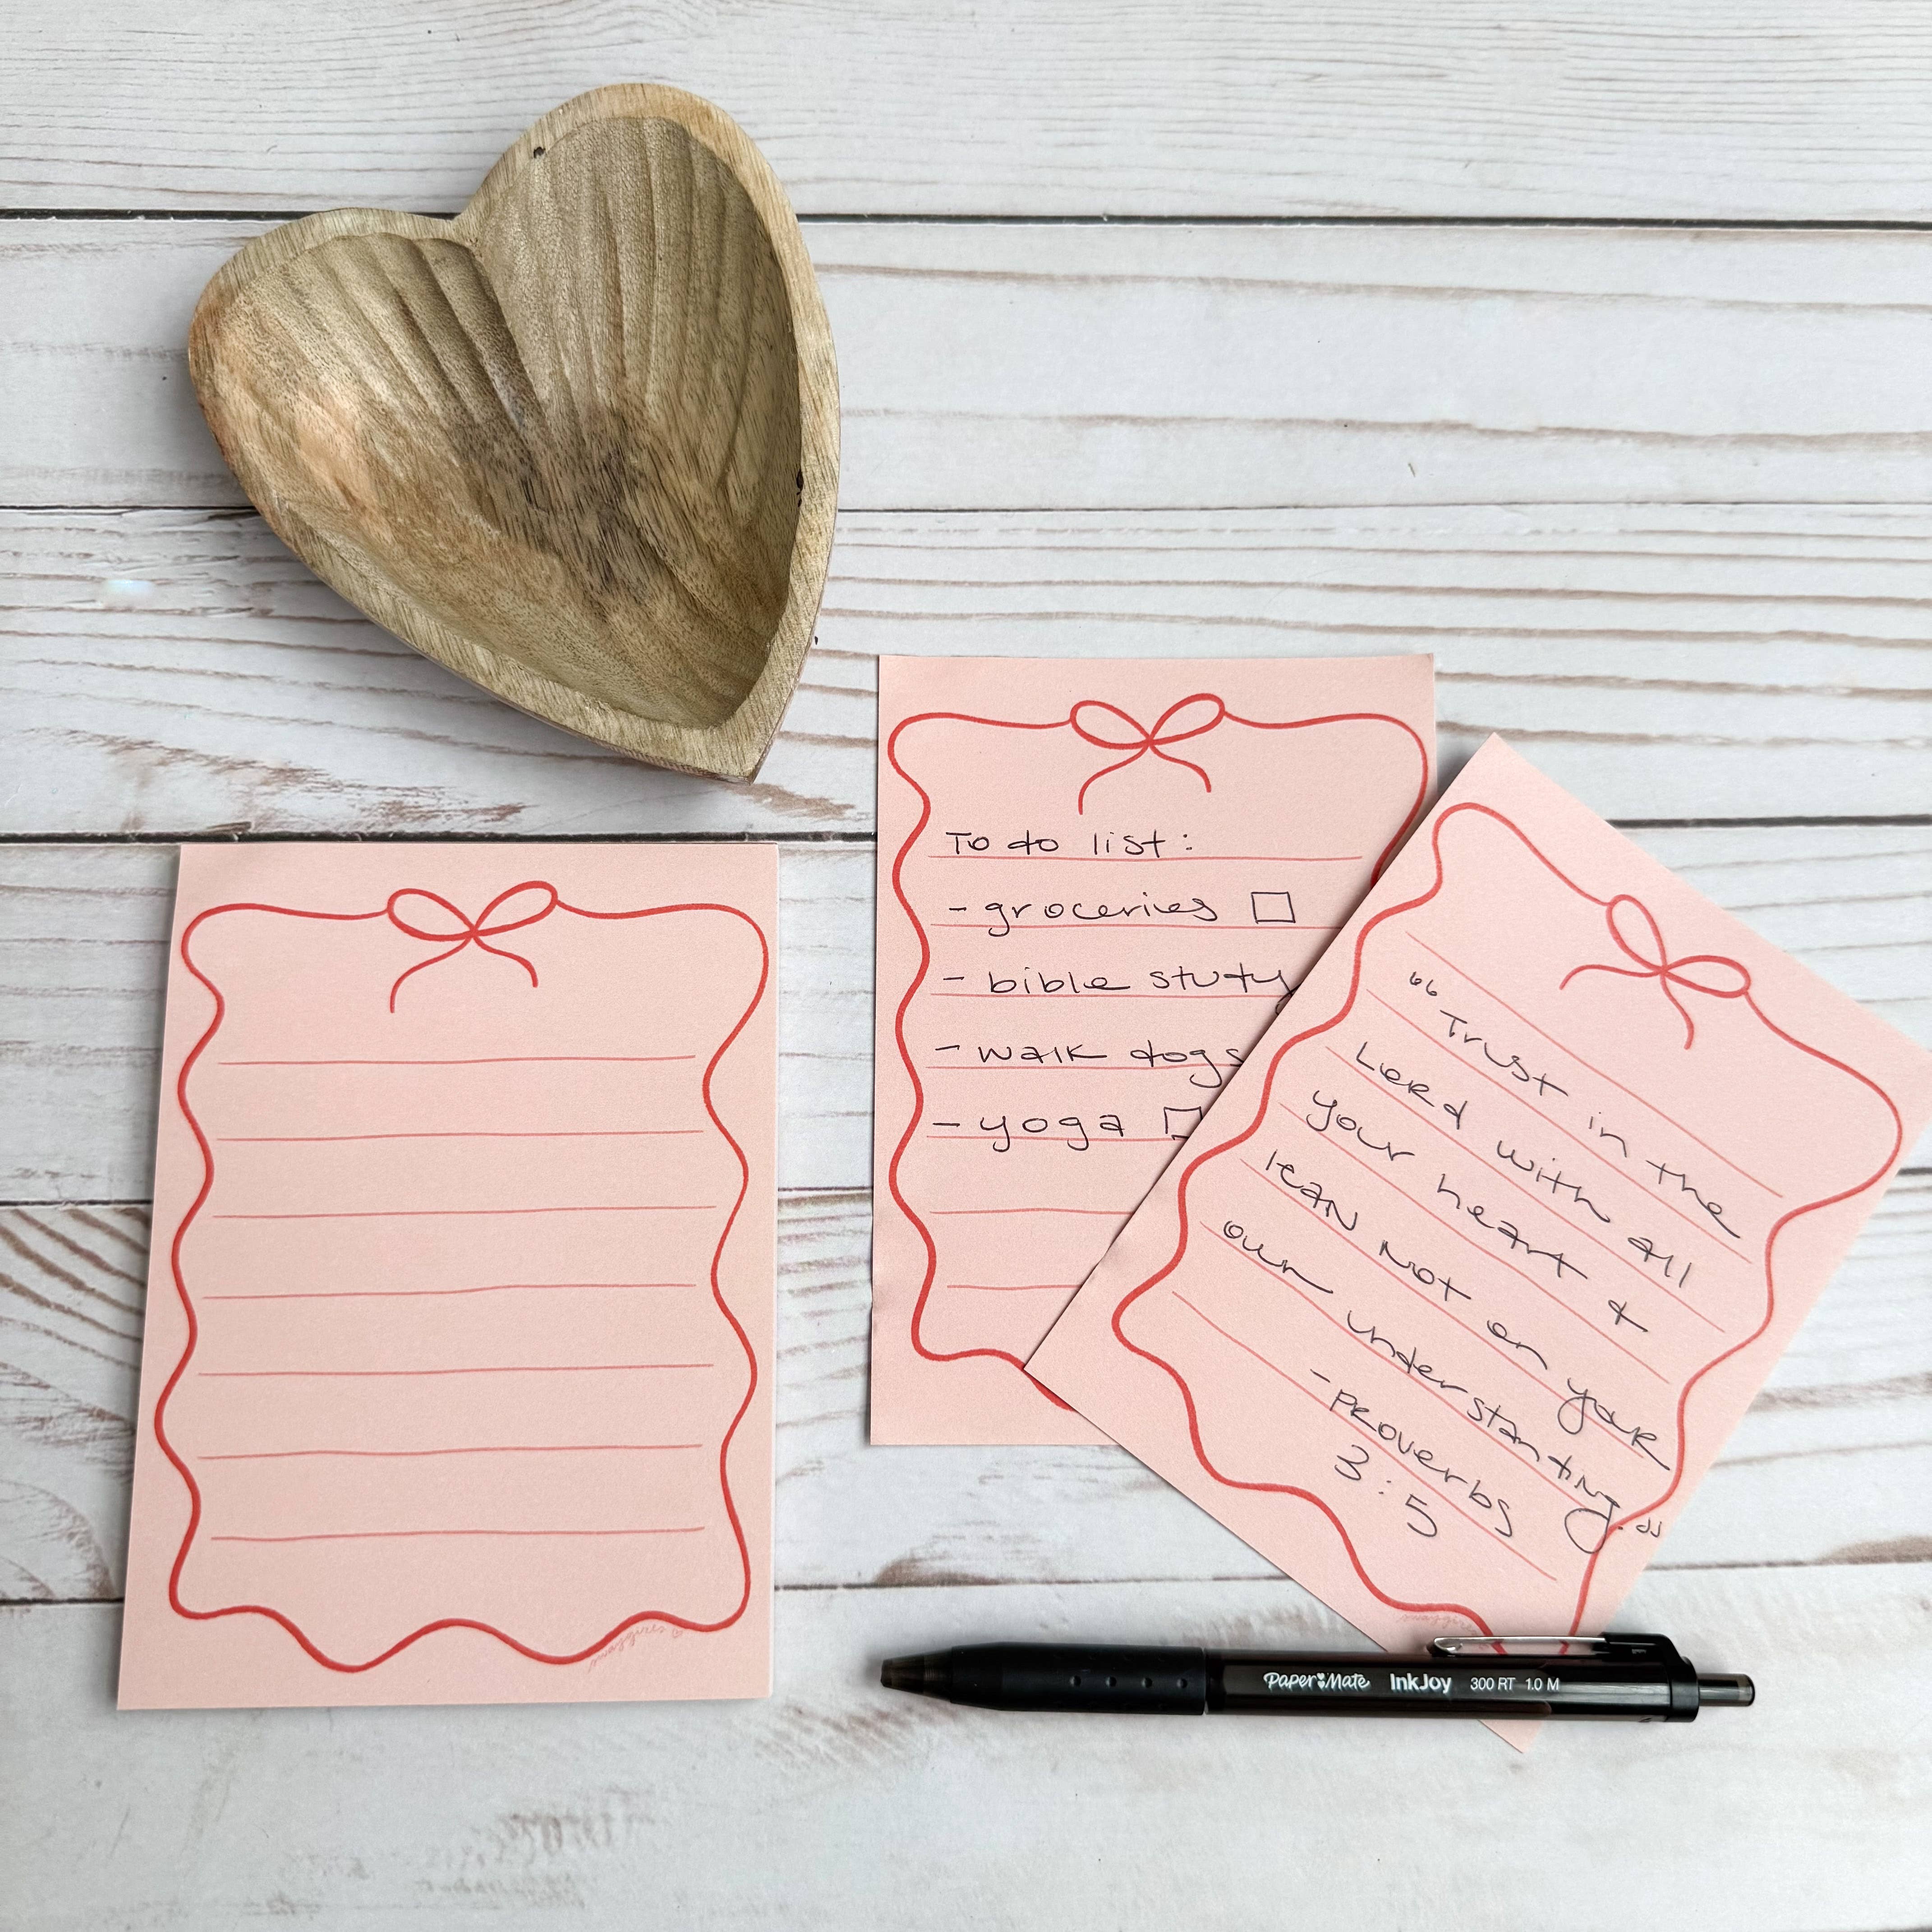 To do list:
- groceries
- bible study
- walk dogs
- yoga
“Trust in the
Lord with all
your heart &
lean not on your
own understanding.”
- Proverbs
3:5
PAPER MATE InkJoy 300 RT 1.0 M